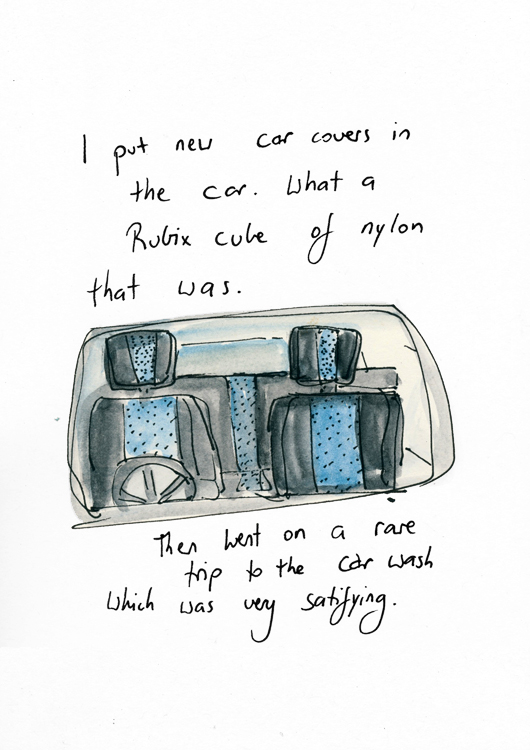 I put new car covers in
the car. What a
Rubix cube of nylon
that was.
Then went on a rare
trip to the car wash
which was very satifying.